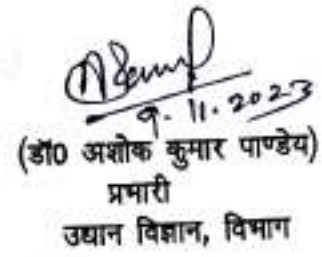 9.11.2023
(डॉ0 अशोक कुमार पाण्डेय)
प्रभारी
उद्यान विज्ञान, विभाग